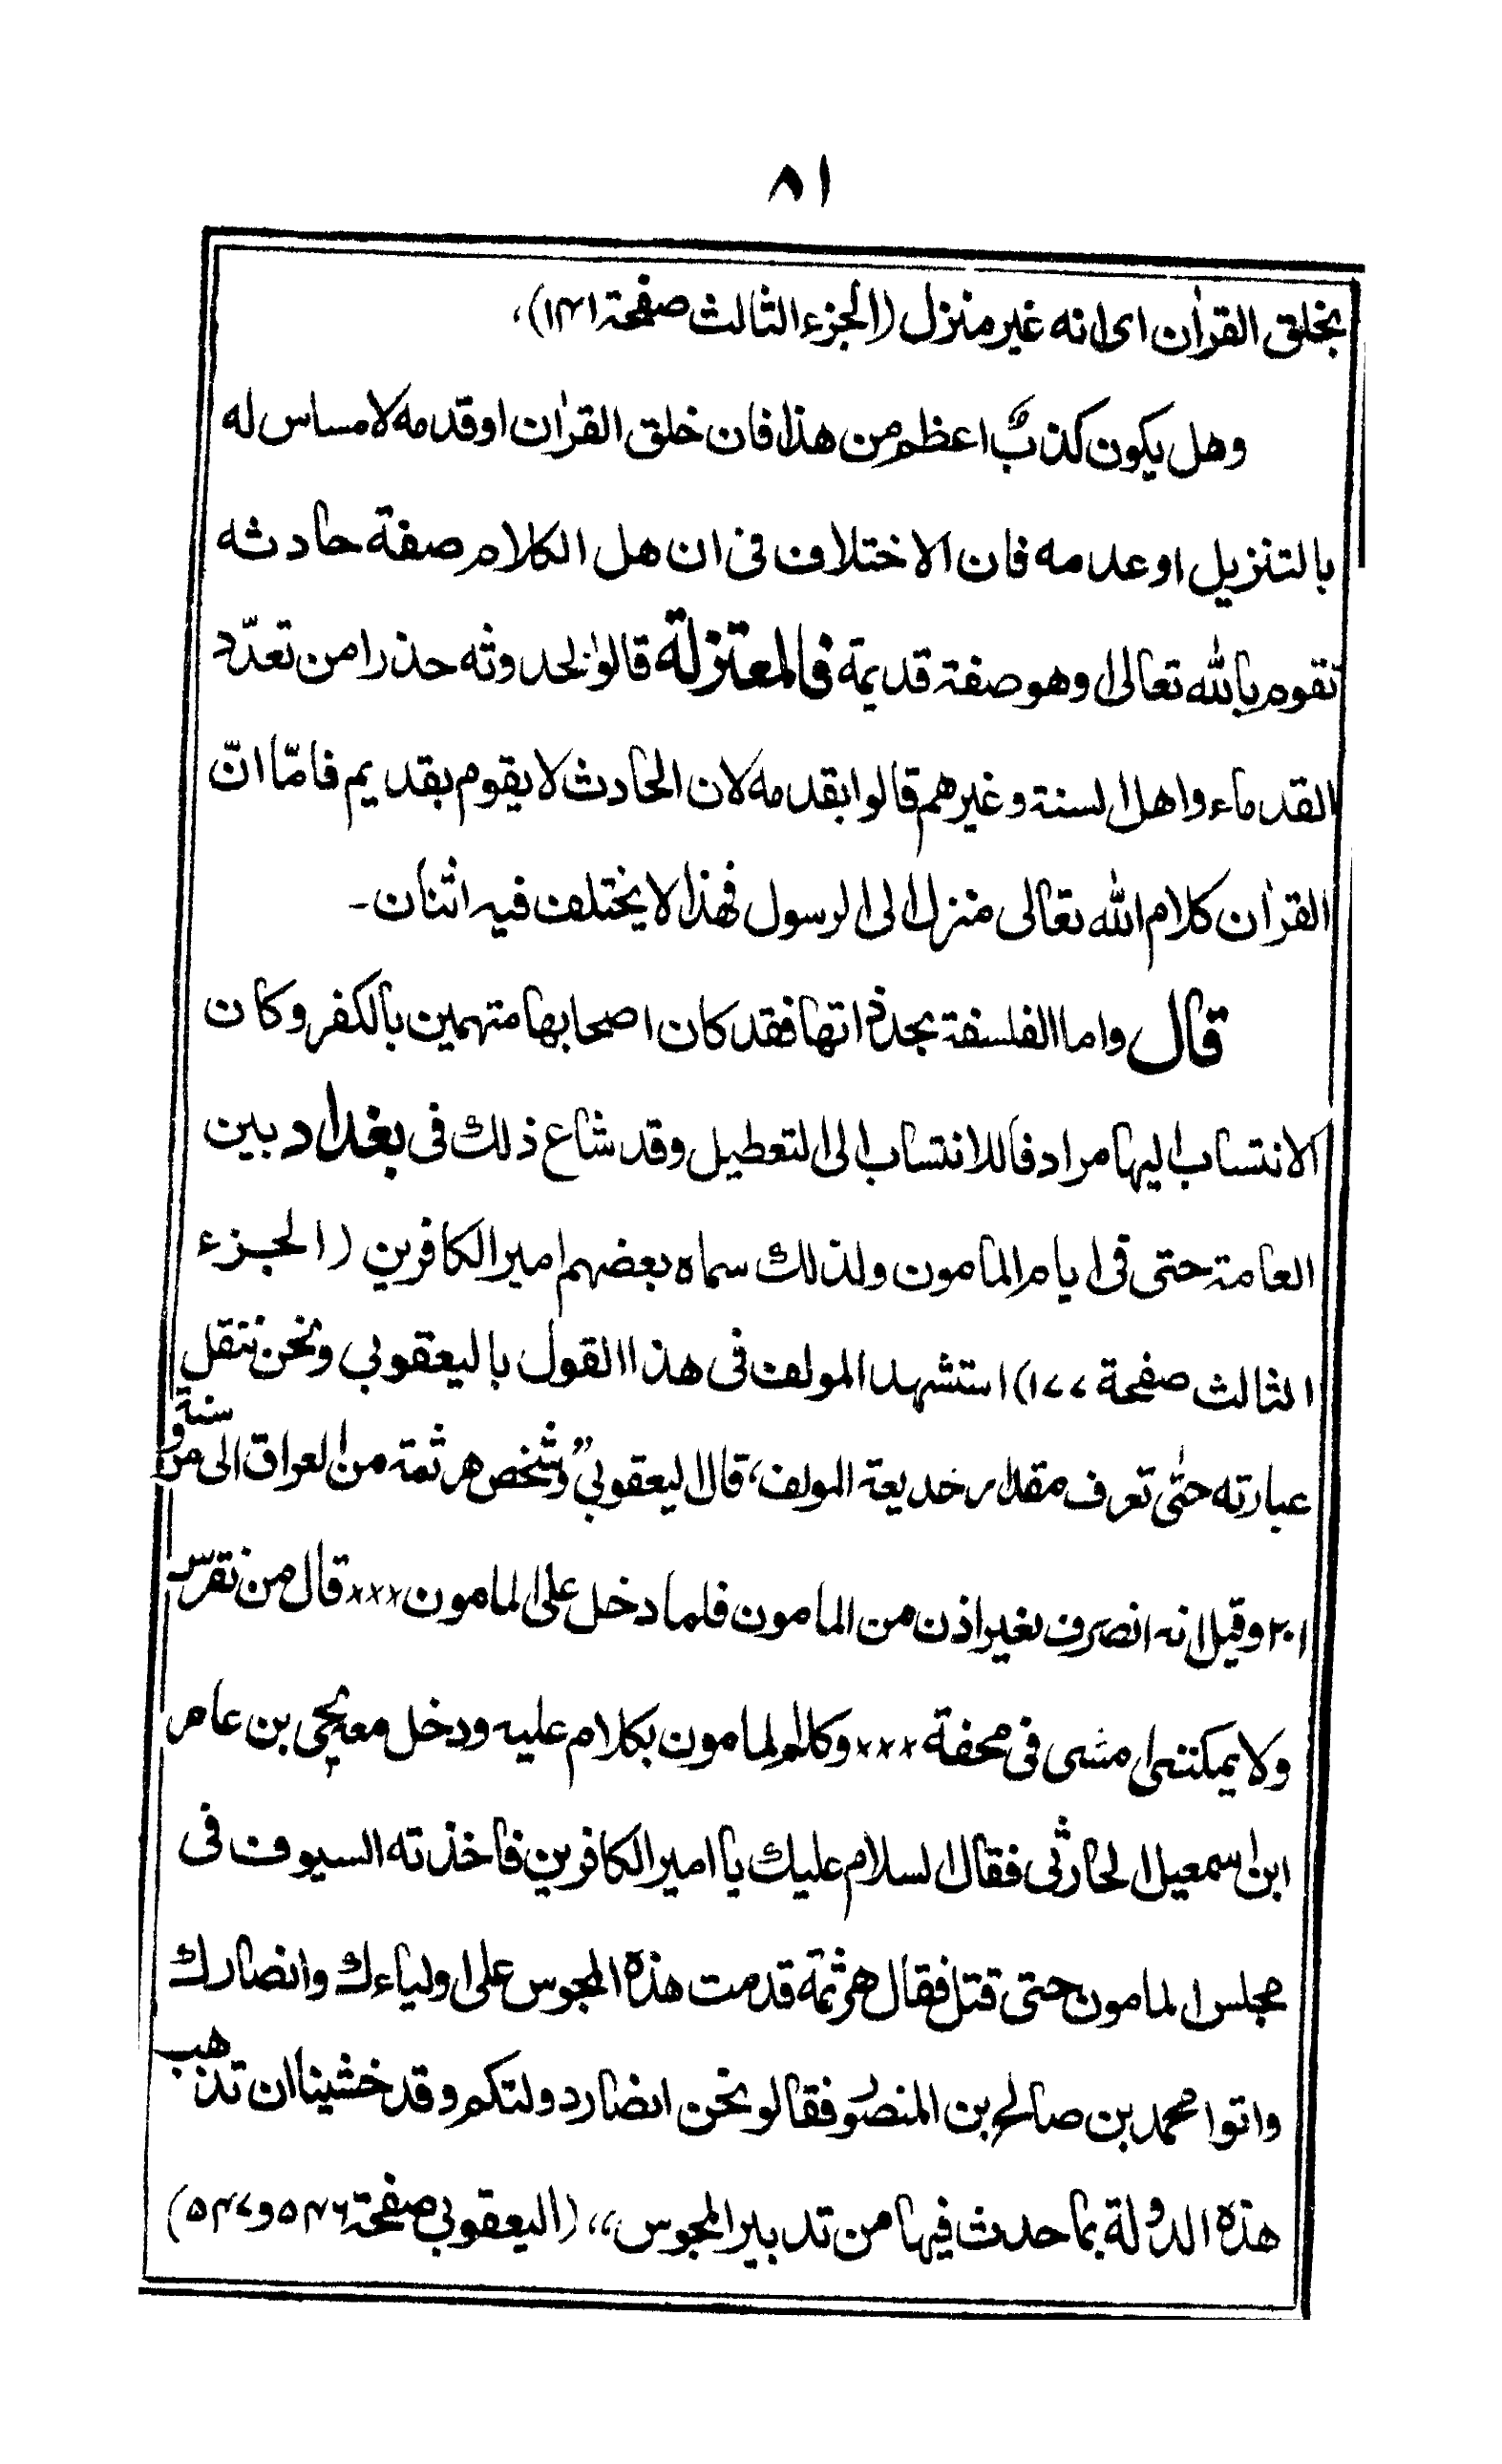 ٨١
بخلق القرأن اى انه غير منزل (الجزء الثالث صفحة ١٤١)،
وهل يكون كذبٌ اعظم من هذا فان خلق القرأن او قدمه لا مساس له
بالتنزيل او عدمه فان الاختلاف فى ان هل الكلام صفة حادثه
تقوم بالله تعالى او هو صفة قديمة فالمعتزلة قالوا بحدوثه حذرا من تعدّد
القدماء واهل السنة وغيرهم قالوا بقدمه لان الحادث لا يقوم بقديم فامّا انّ
القرأن كلام الله تعالى منزل الى الرسول فهذا لا يختلف فيه اثنان -
قال واما الفلسفة بحد ذاتها فقد كان اصحابها متهمين بالكفر وكان
الانتساب اليها مرادفا للانتساب الى التعطيل وقد شاع ذلك فى بغداد بين
العامة حتى فى ايام المامون ولذلك سماه بعضهم امير الكافرين (الجزء
الثالث صفحة ١٧٧) استشهد المولف فى هذا القول باليعقوبى ونحن ننقل
عبارته حتى تعرف مقدار خديعة المولف، قال اليعقوبى ”وشخص هرثمة من العراق الى مرو سنة
٢٠١ وقيل انه انصرف بغير اذن من المامون فلما دخل على المامون ××× قال من نقرس
ولا يمكننى امشى فى محفة ××× وكلم المامون بكلام عليه ودخل معه يحيى بن عامر
ابن اسمعيل الحارثى فقال السلام عليك يا امير الكافرين فاخذته السيوف فى
مجلس المامون حتى قتل فقال هرثمة قدمت هذه المجوس على اولياءك وانصارك
واتوا محمد بن صالح بن المنصور فقالو نحن انصار دولتكم وقد خشينا ان تذهب
هذه الدولة بما حدث فيها من تدبير المجوس،، (اليعقوبى صفحة ٥٤٦ و ٥٤٧)